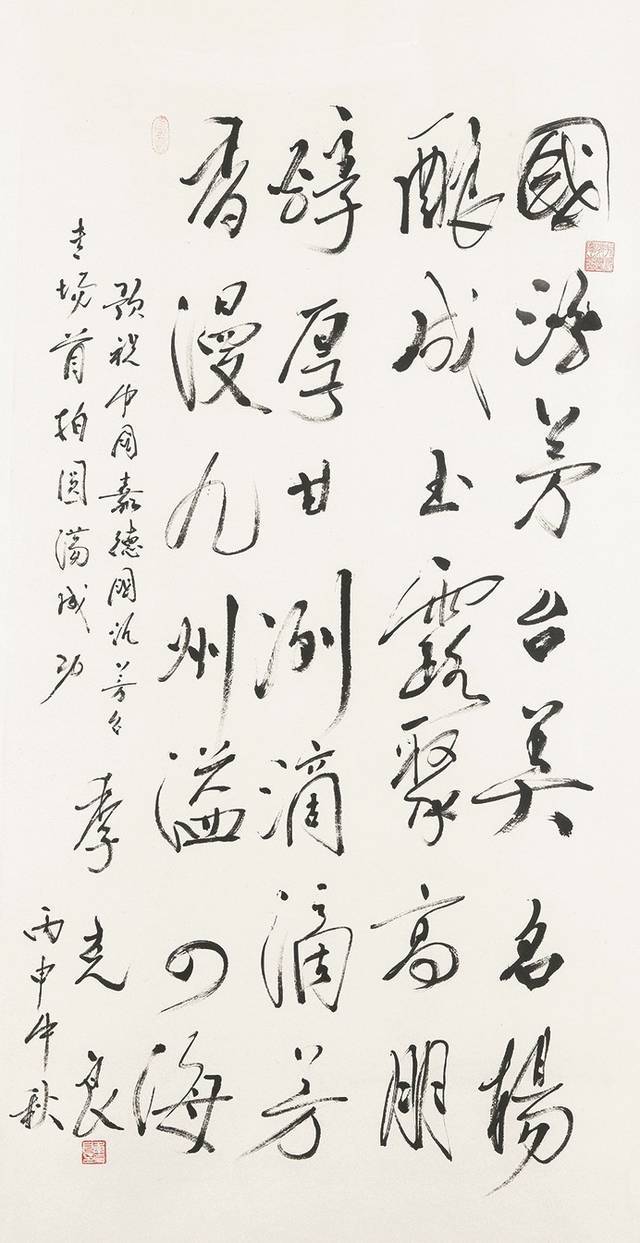 國酒茅台美名楊
酿成玉露聚高朋
醇厚甘洌滴滴芳
香漫九州溢四海
预祝中国嘉德国酒茅台
专场首拍圆满成功
季克良
丙申中秋